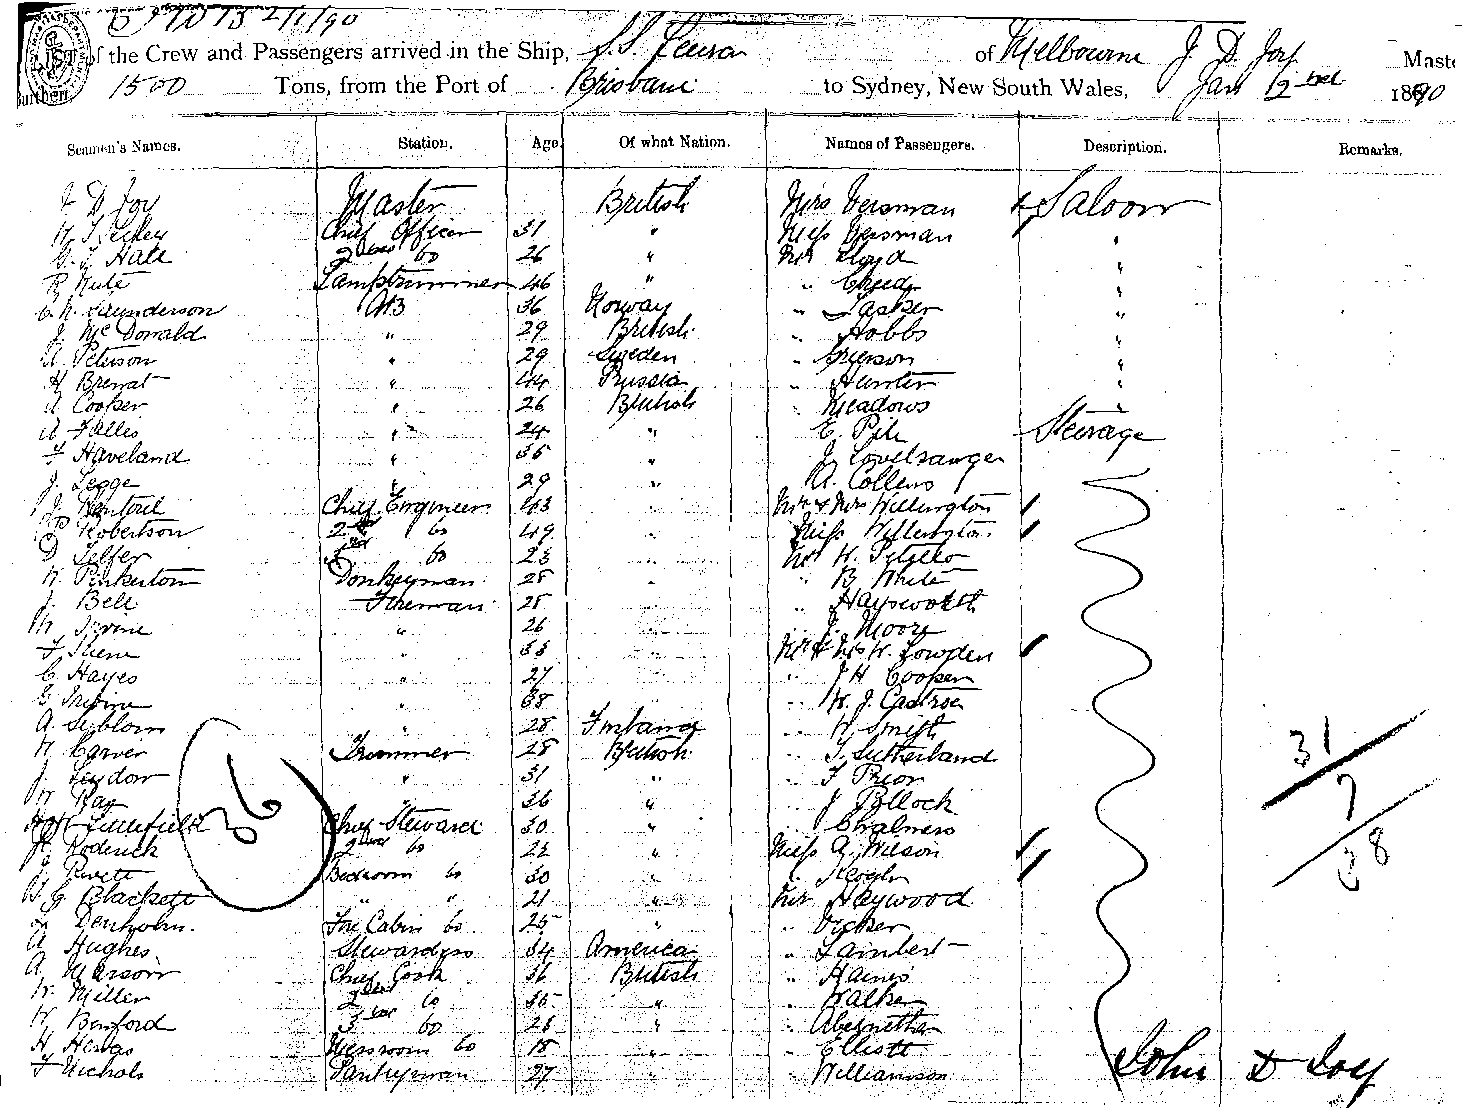 2/1/90
LIST of the Crew and Passengers arrived in the Ship, S.S. of Melbourne J. D. Joy Maste
Burthen 1500 Tons, from the Port of Brisbane to Sydney, New South Wales, Jan 2nd 1890
Seamen's Names. Station. Age Of what Nation. Names of Passengers. Description. Remarks.
J D Joy Master British Mrs Versman Saloon
Chief Officer 31 " Miss Versman "
G. J. Hale 2nd Do 26 " Mr Lloyd "
R Kute Lamptrimmer 46 " " "
C. N. Saunderson AB 36 Norway " Lasker "
J. McDonald " 29 British " Hobbs "
A Peterson " 29 Sweden " Grierson "
H Brenat " 44 Russia " Hunter "
A Cooper " 26 British " Meadows "
A Falles " 24 " E. Pile Steerage
F Haveland " 35 " J. Lovelsanger
J. Legge " 29 " A. Collens
J. Chief Engineer 43 Mr & Mrs Willington
P Robertson 2nd Do 49 Miss Willington
D Telfer 3rd Do 23 Mr W.
W. Pinkerton Donkeyman 28 " B White
J. Bell Fireman 28 " Haysworth
M Irvine " 26 " J. Moore
F Skene " 33 Mr & Mrs W. Lowden
C. Hayes " 27 " J H Cooper
E Irvine " 38 " W. J.
A. Seblom " 28 Finland " W Smith
W Carver Trimmer 28 British " T. Sutherland
J. Leydon " 31 " " F Prior 31
W Ray " 36 " " J Pollock 7
36
Littlefield Chief Steward 30 " " Chalmers
Roderick 2nd Do 22 " Miss A. Wilson 38
J. Rivett Bedroom Do 30 " " Keogh
W. G. Blackett " " 21 " Mr Haywood
Denholm. Fore Cabin Do 25 " " Vicker
A Hughes Stewardess 34 America " Lambert
A. Marson Chief Cook 36 British " Haines
W. Miller 2nd Do 35 " " Walker
W Benford 3rd Do 28 " " Abernethan
H Messroom Do 18 " " Elliott
F Nichols Pantryman 27 " Williamson
John D Joy